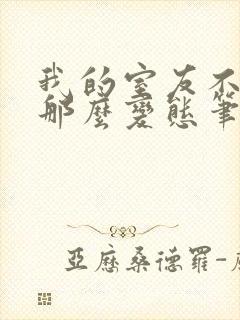 我的室友不
那麼變態筆
亞歷桑德羅-